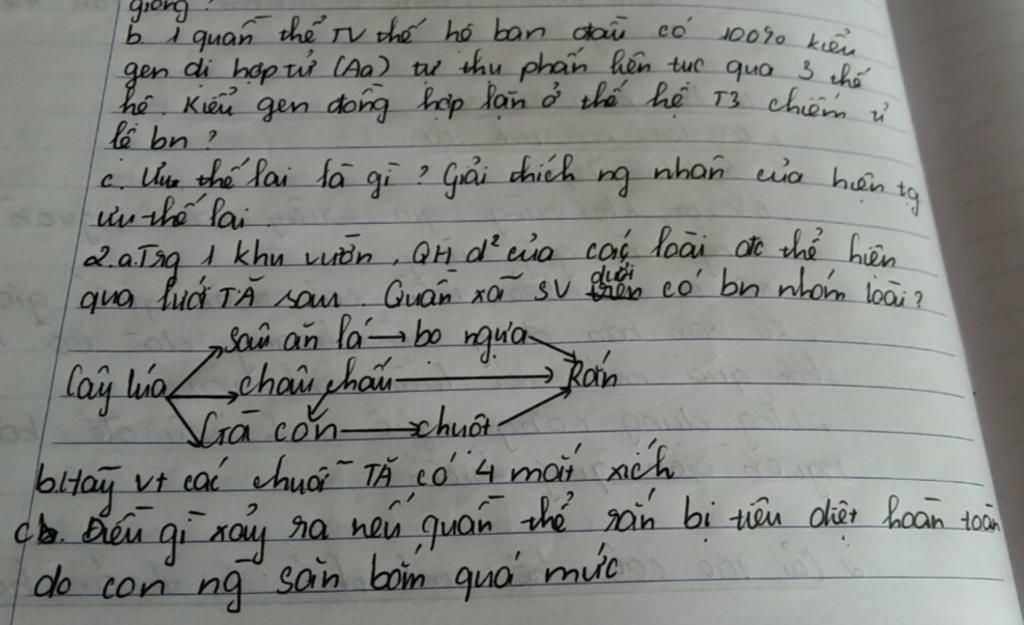 giống?
b. 1 quần thể TV thế hệ ban đầu có 100% kiểu
gen dị hợp tử (Aa) tự thụ phấn liên tục qua 3 thế
hệ. Kiểu gen đồng hợp lặn ở thế hệ T3 chiếm tỉ
lệ bn?
c. Ưu thế lai là gì? Giải thích ng nhân của hiện tg
ưu thế lai.
2.a. Trg 1 khu vườn, QH d² của các loài đc thể hiện
qua lưới TĂ sau. Quần xã SV dưới có bn nhóm loài?
sâu ăn lá → bọ ngựa
Cây lúa châu chấu → Rắn
Gà con → chuột
b. Hãy vt các chuỗi TĂ có 4 mắt xích
c. Điều gì xảy ra nếu quần thể rắn bị tiêu diệt hoàn toàn
do con ng săn bắn quá mức